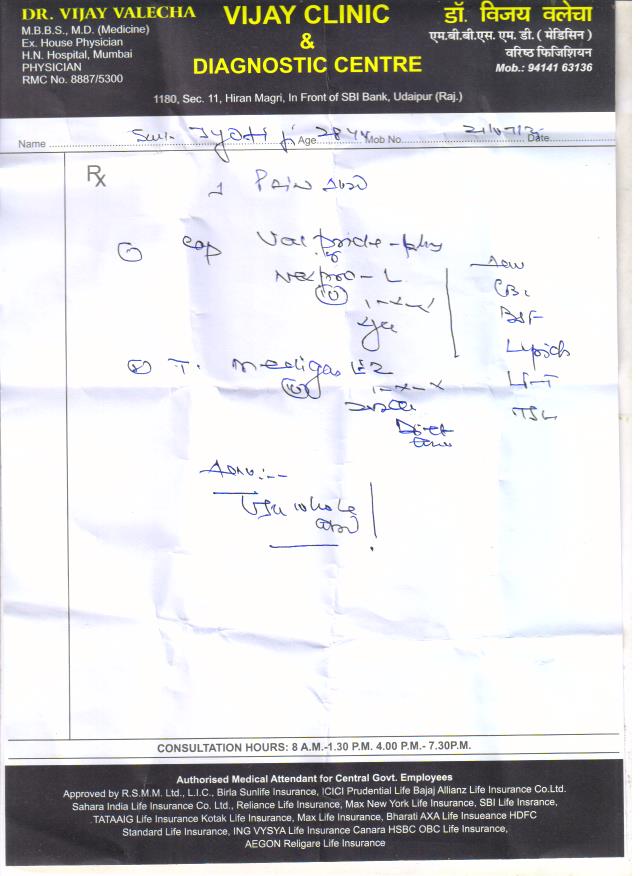 DR. VIJAY VALECHA
M.B.B.S., M.D. (Medicine)
Ex. House Physician
H.N. Hospital, Mumbai
PHYSICIAN
RMC No. 8887/5300
VIJAY CLINIC
&
DIAGNOSTIC CENTRE
डॉ. विजय वलेचा
एम.बी.बी.एस. एम. डी. ( मेडिसिन )
वरिष्ठ फिजिशियन
Mob.: 94141 63136
1180, Sec. 11, Hiran Magri, In Front of SBI Bank, Udaipur (Raj.)
Name Jyoti ji Age 28 Mob No. Date
Rx
Pain
① Cap
Nexpro-L
10
② T.
10
Adv
CBC
BSF
Lipids
LFT
TSH
Adv:--
USG whole
CONSULTATION HOURS: 8 A.M.-1.30 P.M. 4.00 P.M.- 7.30P.M.
Authorised Medical Attendant for Central Govt. Employees
Approved by R.S.M.M. Ltd., L.I.C., Birla Sunlife Insurance, ICICI Prudential Life Bajaj Allianz Life Insurance Co.Ltd.
Sahara India Life Insurance Co. Ltd., Reliance Life Insurance, Max New York Life Insurance, SBI Life Insrance,
TATAAIG Life Insurance Kotak Life Insurance, Max Life Insurance, Bharati AXA Life Insueance HDFC
Standard Life Insurance, ING VYSYA Life Insurance Canara HSBC OBC Life Insurance,
AEGON Religare Life Insurance